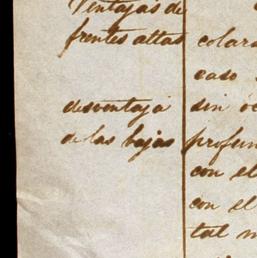 Ventajas de
frentes altas
desventaja
de las bajas
colara
caso
sin oc
profun
con el
con el
tal m